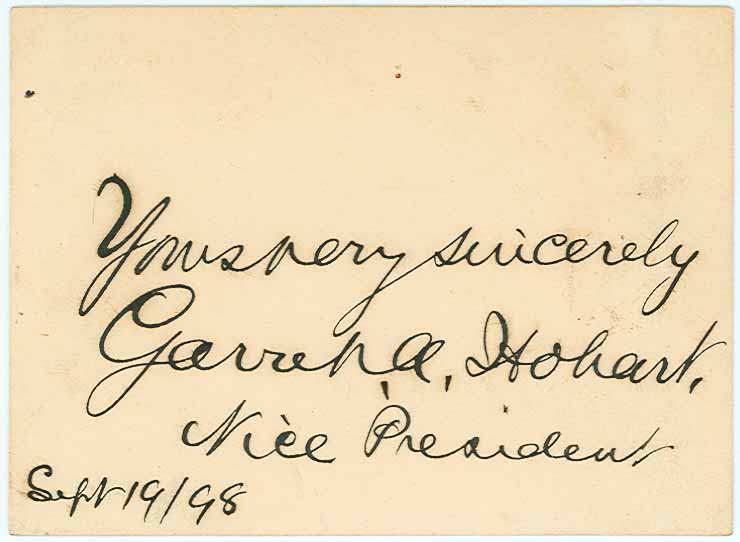 Yours very sincerely
Garret A. Hobart.
Vice President
Sept 19/98